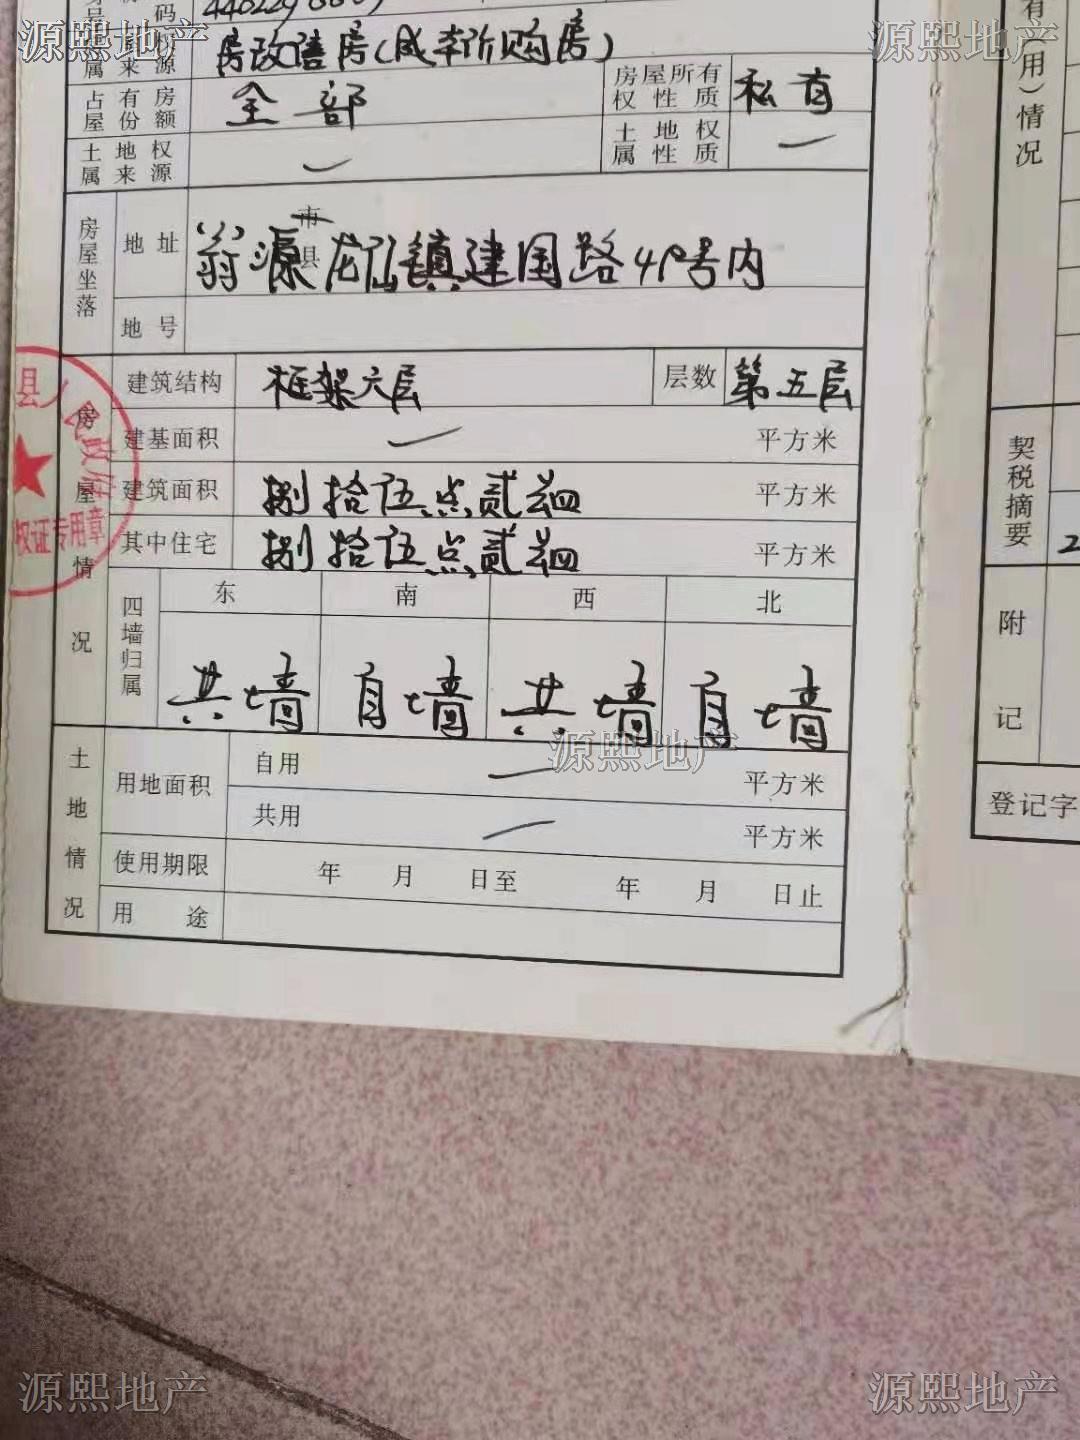 源熙地产 源熙地产
码 440229
属来源 房改售房(成本价购房)
占有房屋份额 全部 房屋所有权性质 私有
土地权属来源 — 土地权属性质 —
房屋坐落 地址 翁源市县龙仙镇建国路49号内
地号
房屋情况 建筑结构 框架六层 层数 第五层
建基面积 — 平方米
建筑面积 捌拾伍点贰肆 平方米
其中住宅 捌拾伍点贰肆 平方米
四墙归属 东 南 西 北
共墙 自墙 共墙 自墙
源熙地产
土地情况 用地面积 自用 — 平方米
共用 — 平方米
使用期限 年 月 日至 年 月 日止
用途
县人民政府
权证专用章
有(用)情况
契税摘要
附记
登记字
源熙地产 源熙地产